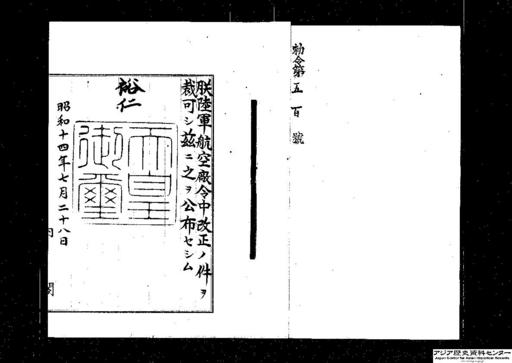 勅令第五百號
朕陸軍航空廠令中改正ノ件ヲ
裁可シ茲ニ之ヲ公布セシム
裕仁
天皇御璽
昭和十四年七月二十八日
内閣
アジア歴史資料センター
Japan Center for Asian Historical Records